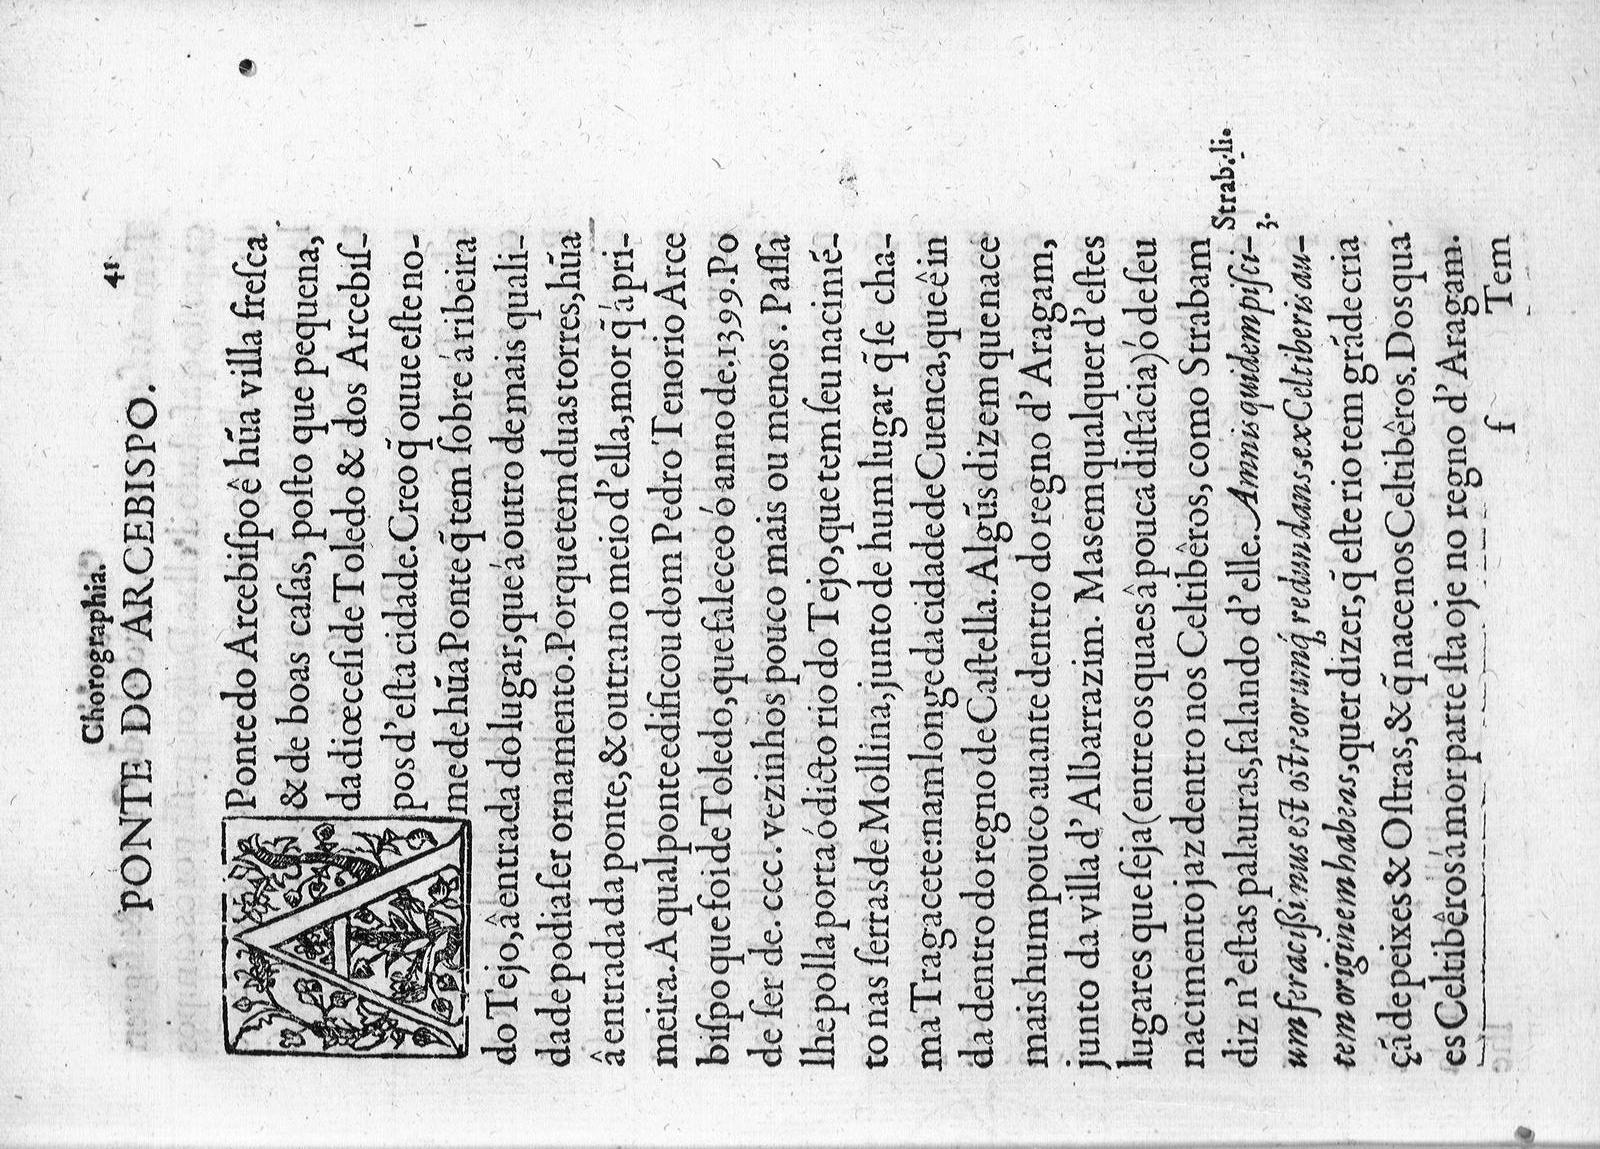 Chorographia. 41
PONTE DO ARCEBISPO.
A Ponte do Arcebiſpo ê hũa villa freſca
& de boas caſas, poſto que pequena,
da diœceſi de Toledo & dos Arcebiſ-
pos d'eſta cidade. Creo q̃ ouue eſte no-
me de hũa Ponte q̃ tem ſobre á ribeira
do Tejo, â entrada do lugar, que á outro de mais quali-
dade podia ſer ornamento. Porque tem duas torres, hũa
â entrada da ponte, & outra no meio d'ella, mor q̃ á pri-
meira. A qual ponte edificou dom Pedro Tenorio Arce
biſpo que foi de Toledo, que faleceo ó anno de. 1399. Po
de ſer de. ccc. vezinhos pouco mais ou menos. Paſſa
lhe polla porta ó dicto rio do Tejo, que tem ſeu nacimẽ-
to nas ſerras de Mollina, junto de hum lugar q̃ ſe cha-
ma Tragacete: nam longe da cidade de Cuenca, que ê in
da dentro do regno de Caſtella. Algũs dizem que nace
mais hum pouco auante dentro do regno d'Aragam,
junto da villa d'Albarrazim. Mas em qualquer d'eſtes
lugares que ſeja (entre os quaes â pouca diſtãcia) ó de ſeu
nacimento jaz dentro nos Celtibêros, como Strabam
Strab. li. 3.
diz n'eſtas palauras, falando d'elle. Amnis quidem piſci-
um feraciſsimus est ostreorumq́ redundans, ex Celtiberis au-
tem originem habens, quer dizer, q̃ eſte rio tem grãde cria
çã de peixes & Oſtras, & q̃ nace nos Celtibêros. Dos qua
es Celtibêros á mor parte ſta oje no regno d'Aragam.
f Tem